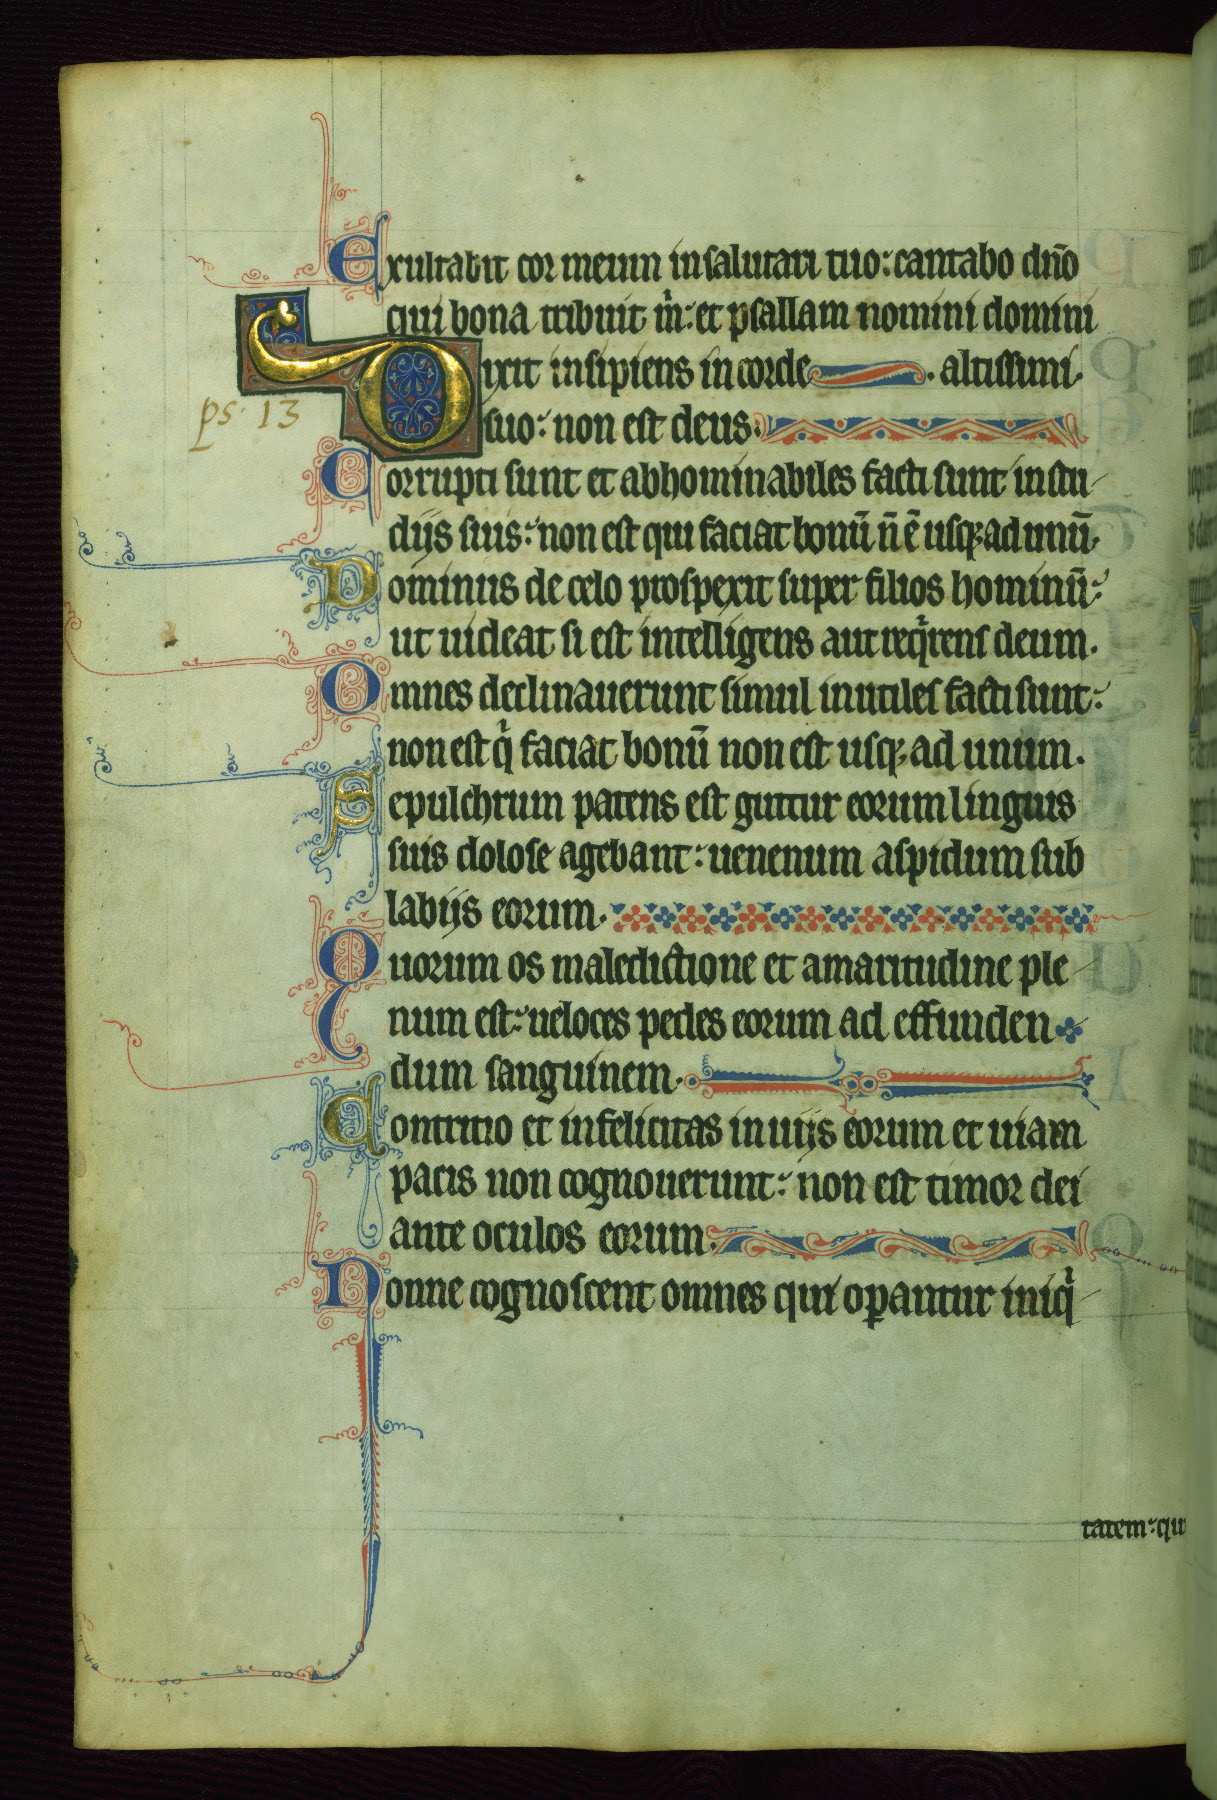 Exultabit cor meum in salutari tuo: cantabo dño
qui bona tribuit m̍: et psallam nomini domini
Dixit insipiens in corde altissimi.
ps. 13
suo: non est deus.
Corrupti sunt et abhominabiles facti sunt in stu
dijs suis: non est qui faciat bonū n̄ ē usq; ad unū.
Dominus de celo prospexit super filios hominū:
ut uideat si est intelligens aut req̍rens deum.
Omnes declinauerunt simul inutiles facti sunt:
non est q̍ faciat bonū non est usq; ad unum.
Sepulchrum patens est guttur eorum linguis
suis dolose agebant: uenenum aspidum sub
labijs eorum.
Quorum os maledictione et amaritudine ple
num est: ueloces pedes eorum ad effunden
dum sanguinem.
Contritio et infelicitas in uijs eorum et uiam
pacis non cognouerunt: non est timor dei
ante oculos eorum.
Nonne cognoscent omnes qui oꝑantur iniq̍
tatem: qui